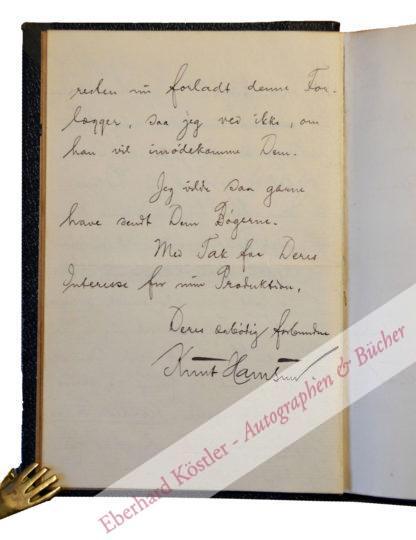 resten nu forladt denne For-
lægger, saa jeg ved ikke, om
han vil imødekomme Dem.
Jeg vilde saa gærne
have sendt Dem Bøgerne.
Med Tak for Deres
Interesse for min Produktion,
Deres ærbødig forbundne
Knut Hamsun.
Eberhard Köstler - Autographen & Bücher